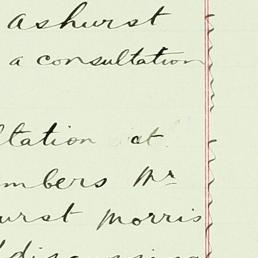 Ashurst
a consultation
ltation at
mbers Mr
urst Morris
discussing